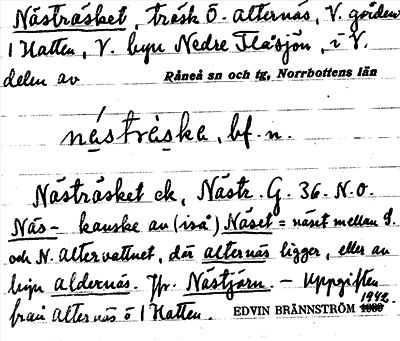 Nästräsket, träsk Ö. Alternäs, V. gården
1 Hatten, V. byn Nedre Flåsjön, i V.
delen av Råneå sn och tg, Norrbottens län
nästräske, bf. n.
Nästräsket ek, Nästr. G. 36. N.O.
Näs- kanske av (iså) Näset = näset mellan S.
och N. Altervattnet, där Alternäs ligger, eller av
byn Aldernäs. Jfr. Nästjärn. – Uppgiften
från Alternäs ö 1 Hatten. EDVIN BRÄNNSTRÖM 1942.